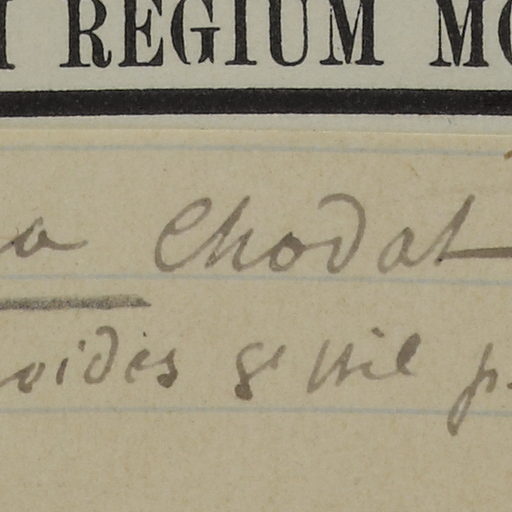 I REGIUM MO
a Chodat
oides St Hil p.